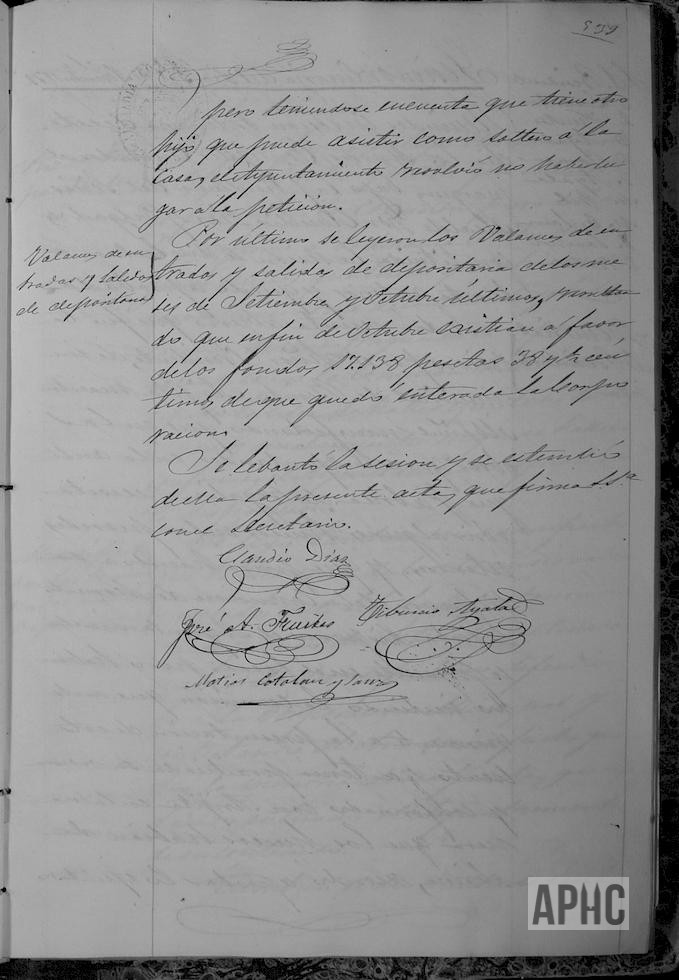 pero teniendose encuenta que tiene otro
hijo que puede asistir como soltero á la
casa, el Ayuntamiento resolvió no haber lu
gar a la petición.
Valances de en
tradas y salidas
de depositaria
Por ultimo se leyeron los Valances de en
tradas y salidas de depositaria delos me
ses de Setiembre y Octubre últimos, resultan
do, que enfin de Octubre existian á favor
delos fondos 17.138 pesetas 38 y ½ cén
timos de que quedó enterada la Corpo
racion.
Se lebantó la sesion y se estendió
de ella la presente acta, que firma S.Sª
con el Secretario.
Claudio Diaz
José A. Freitas
Tiburcio Ayala
Matias Catalan y Sanz
APHC